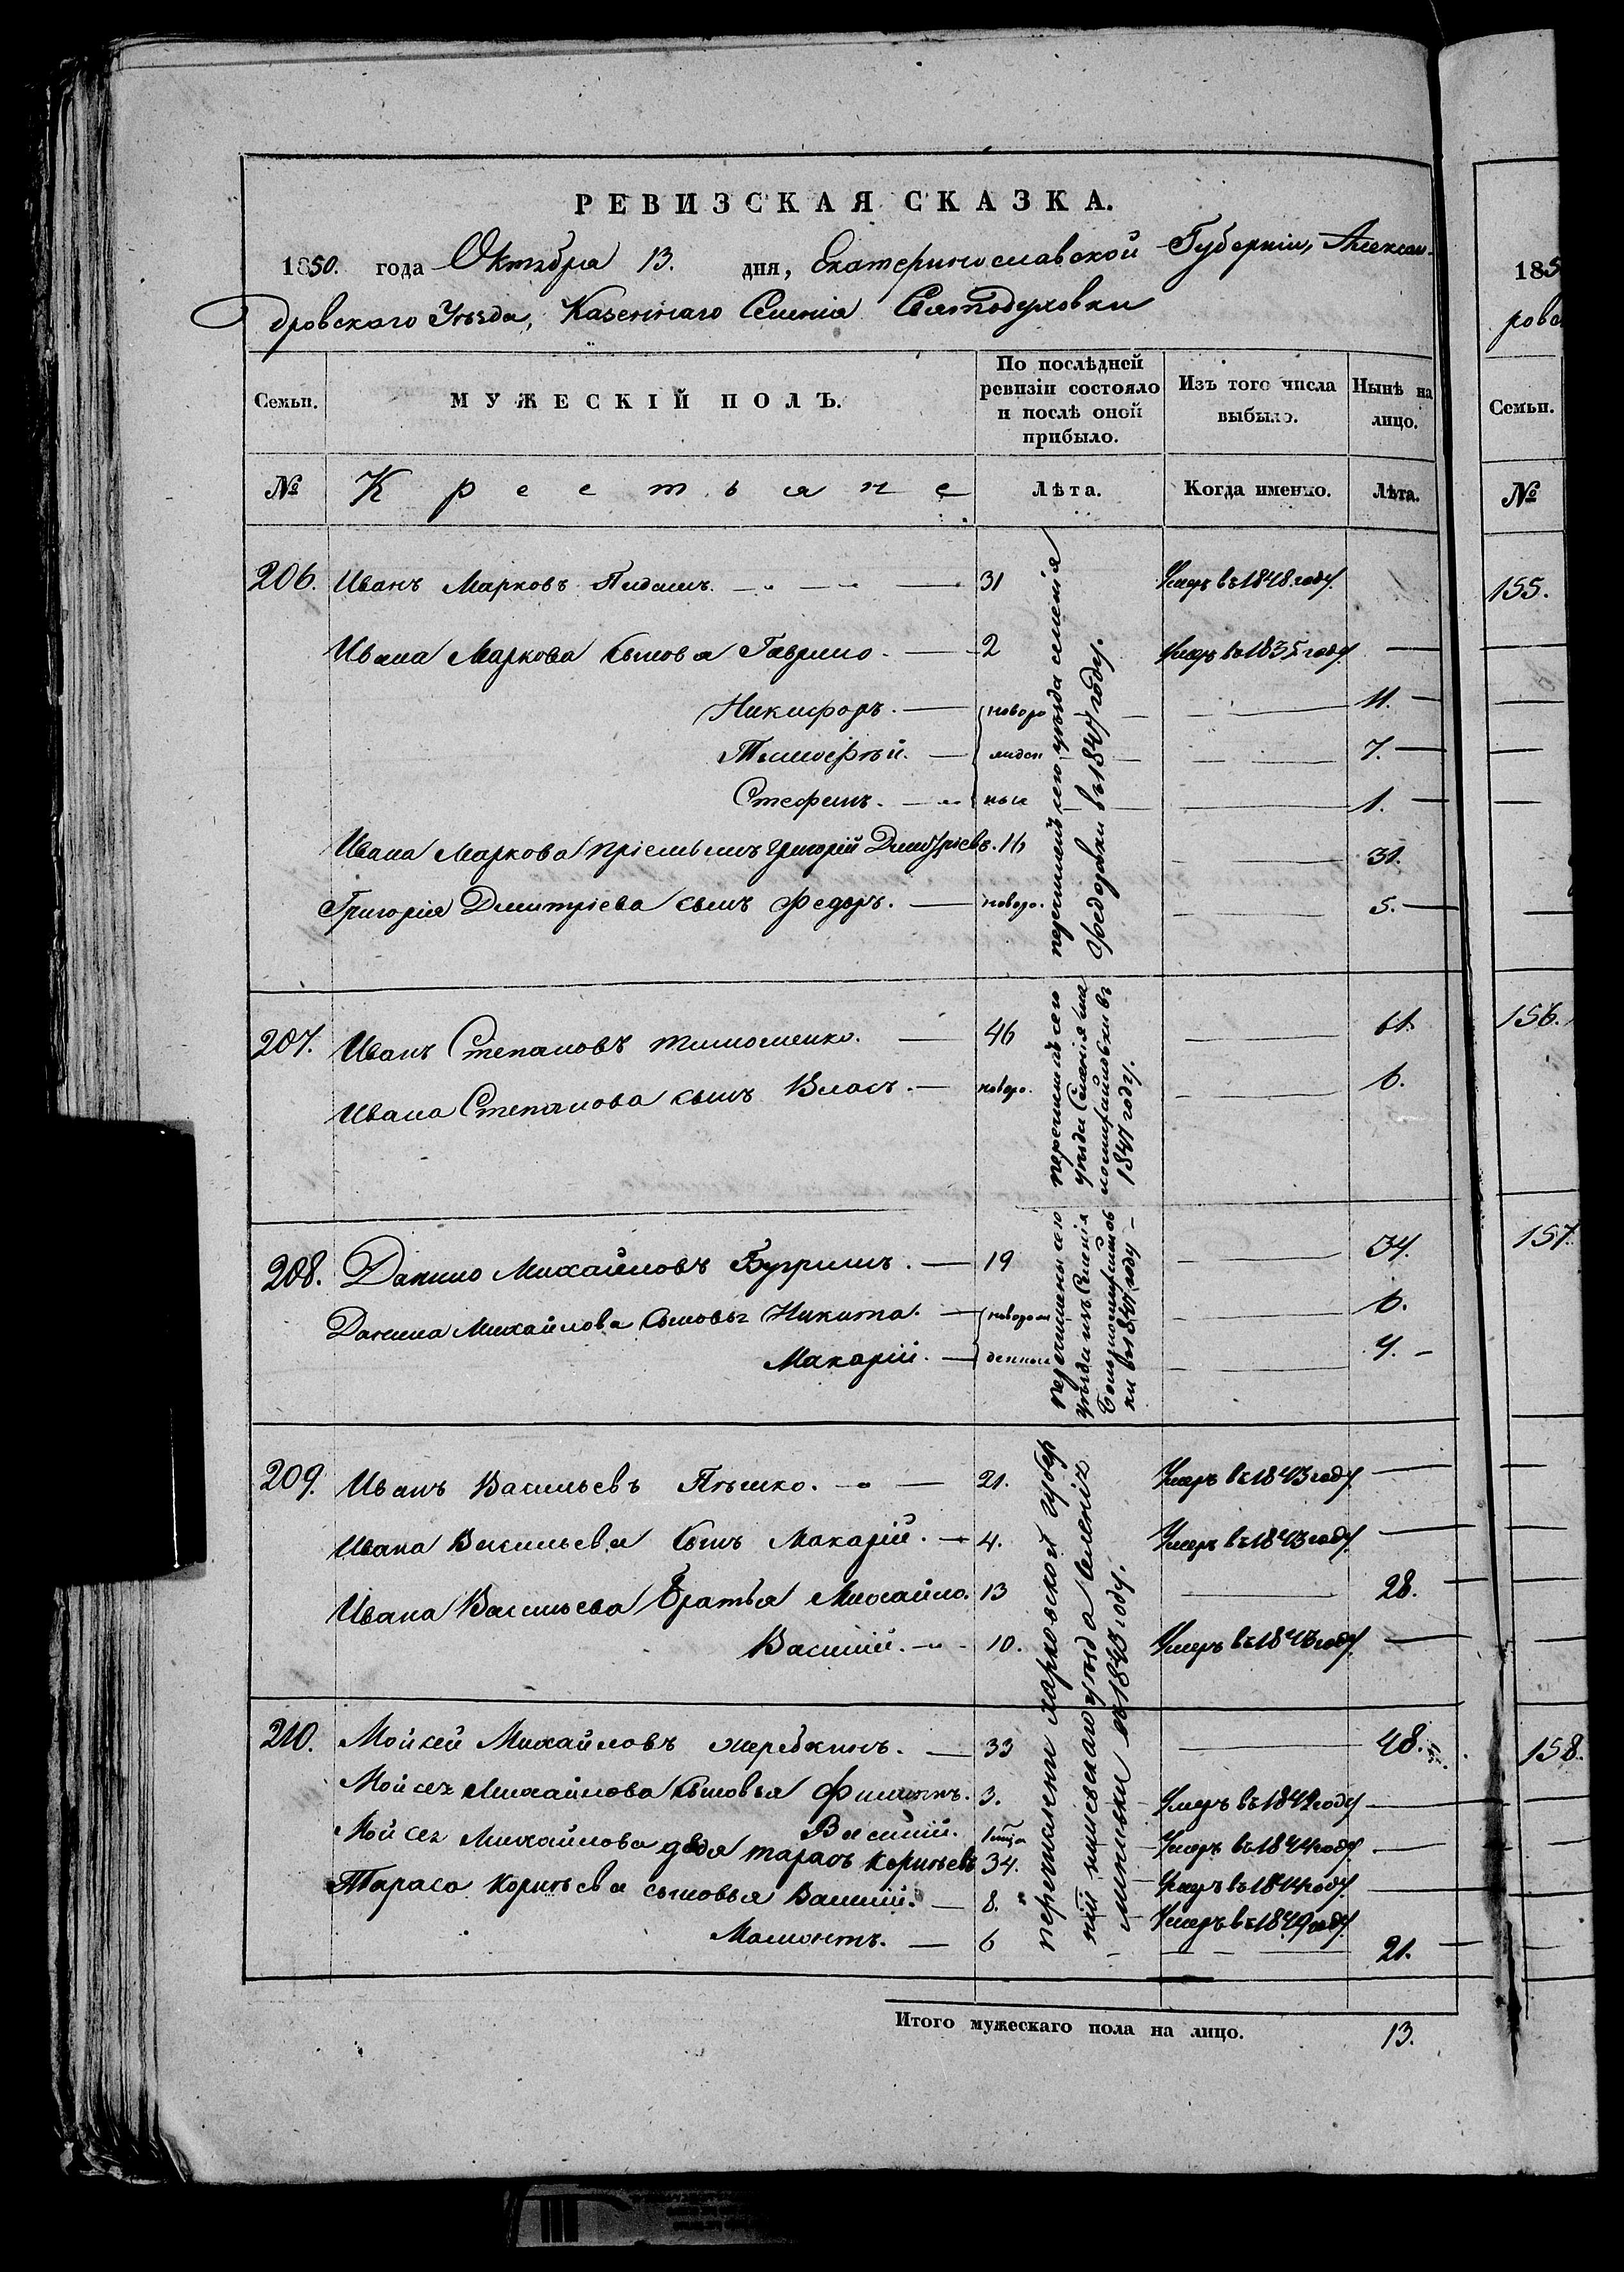 РЕВИЗСКАЯ СКАЗКА.
1850. года Октября 13. дня, Екатеринославской Губерніи, Алексан-
дровского Уѣзда, Казеннаго Селенія Святодуховки
Семьи. МУЖЕСКІЙ ПОЛЪ. По послѣдней ревизіи состояло и послѣ оной прибыло. Изъ того числа выбыло. Нынѣ на лицо.
№ Крестьяне Лѣта. Когда именно. Лѣта.
206. Иванъ Марковъ 31 Умеръ въ 1848 году.
Ивана Маркова сыновья Гаврило. 2 Умеръ въ 1835 году.
Никифоръ. новоро 11.
Тимофѣй. жден 7.
Стефанъ. ные 1.
Ивана Маркова пріемышъ Григорій Дмитріевъ. 16 31.
Григорія Дмитріева сынъ Федоръ. новоро. 5.
перечисленъ сего уѣзда селенія
Федоровки въ 1847 году.
207. Иванъ Степановъ Тимошенко. 46 61.
Ивана Степанова сынъ Власъ. новоро. 6.
перечисленъ сего
уѣзда Селенія
въ
1847 году.
208. Данило Михайловъ Бугримъ. 19 34.
Данила Михайлова сыновья Никита. новорож 6.
Макарій. денные 4.
перечислены сего
уѣзда изъ Селенія
ки въ 1847 году
209. Иванъ Васильевъ 21. Умеръ въ 1843 году.
Ивана Васильева сынъ Макарій. 4. Умеръ въ 1843 году.
Ивана Васильева братья Михайло. 13 28.
Василій. 10. Умеръ въ 1843 году.
210. Мойсей Михайловъ Жеребкинъ. 33 48.
Мойсея Михайлова сыновья Филиппъ. 3. Умеръ въ 1842 году
Василій. Умеръ въ 1844 году
Мойсея Михайлова дядя Тарасъ Корнѣевъ 34. Умеръ въ 1844 году
Тараса Корнѣева сыновья Василій. 8. Умеръ въ 1849 году
Мамонтъ. 6 21.
перечислены Харьковской губер
ніи уѣзда Селенія
въ 1843 году.
Итого мужескаго пола на лицо. 13.
185
ровс
Семьи.
№
155.
156.
157.
158.